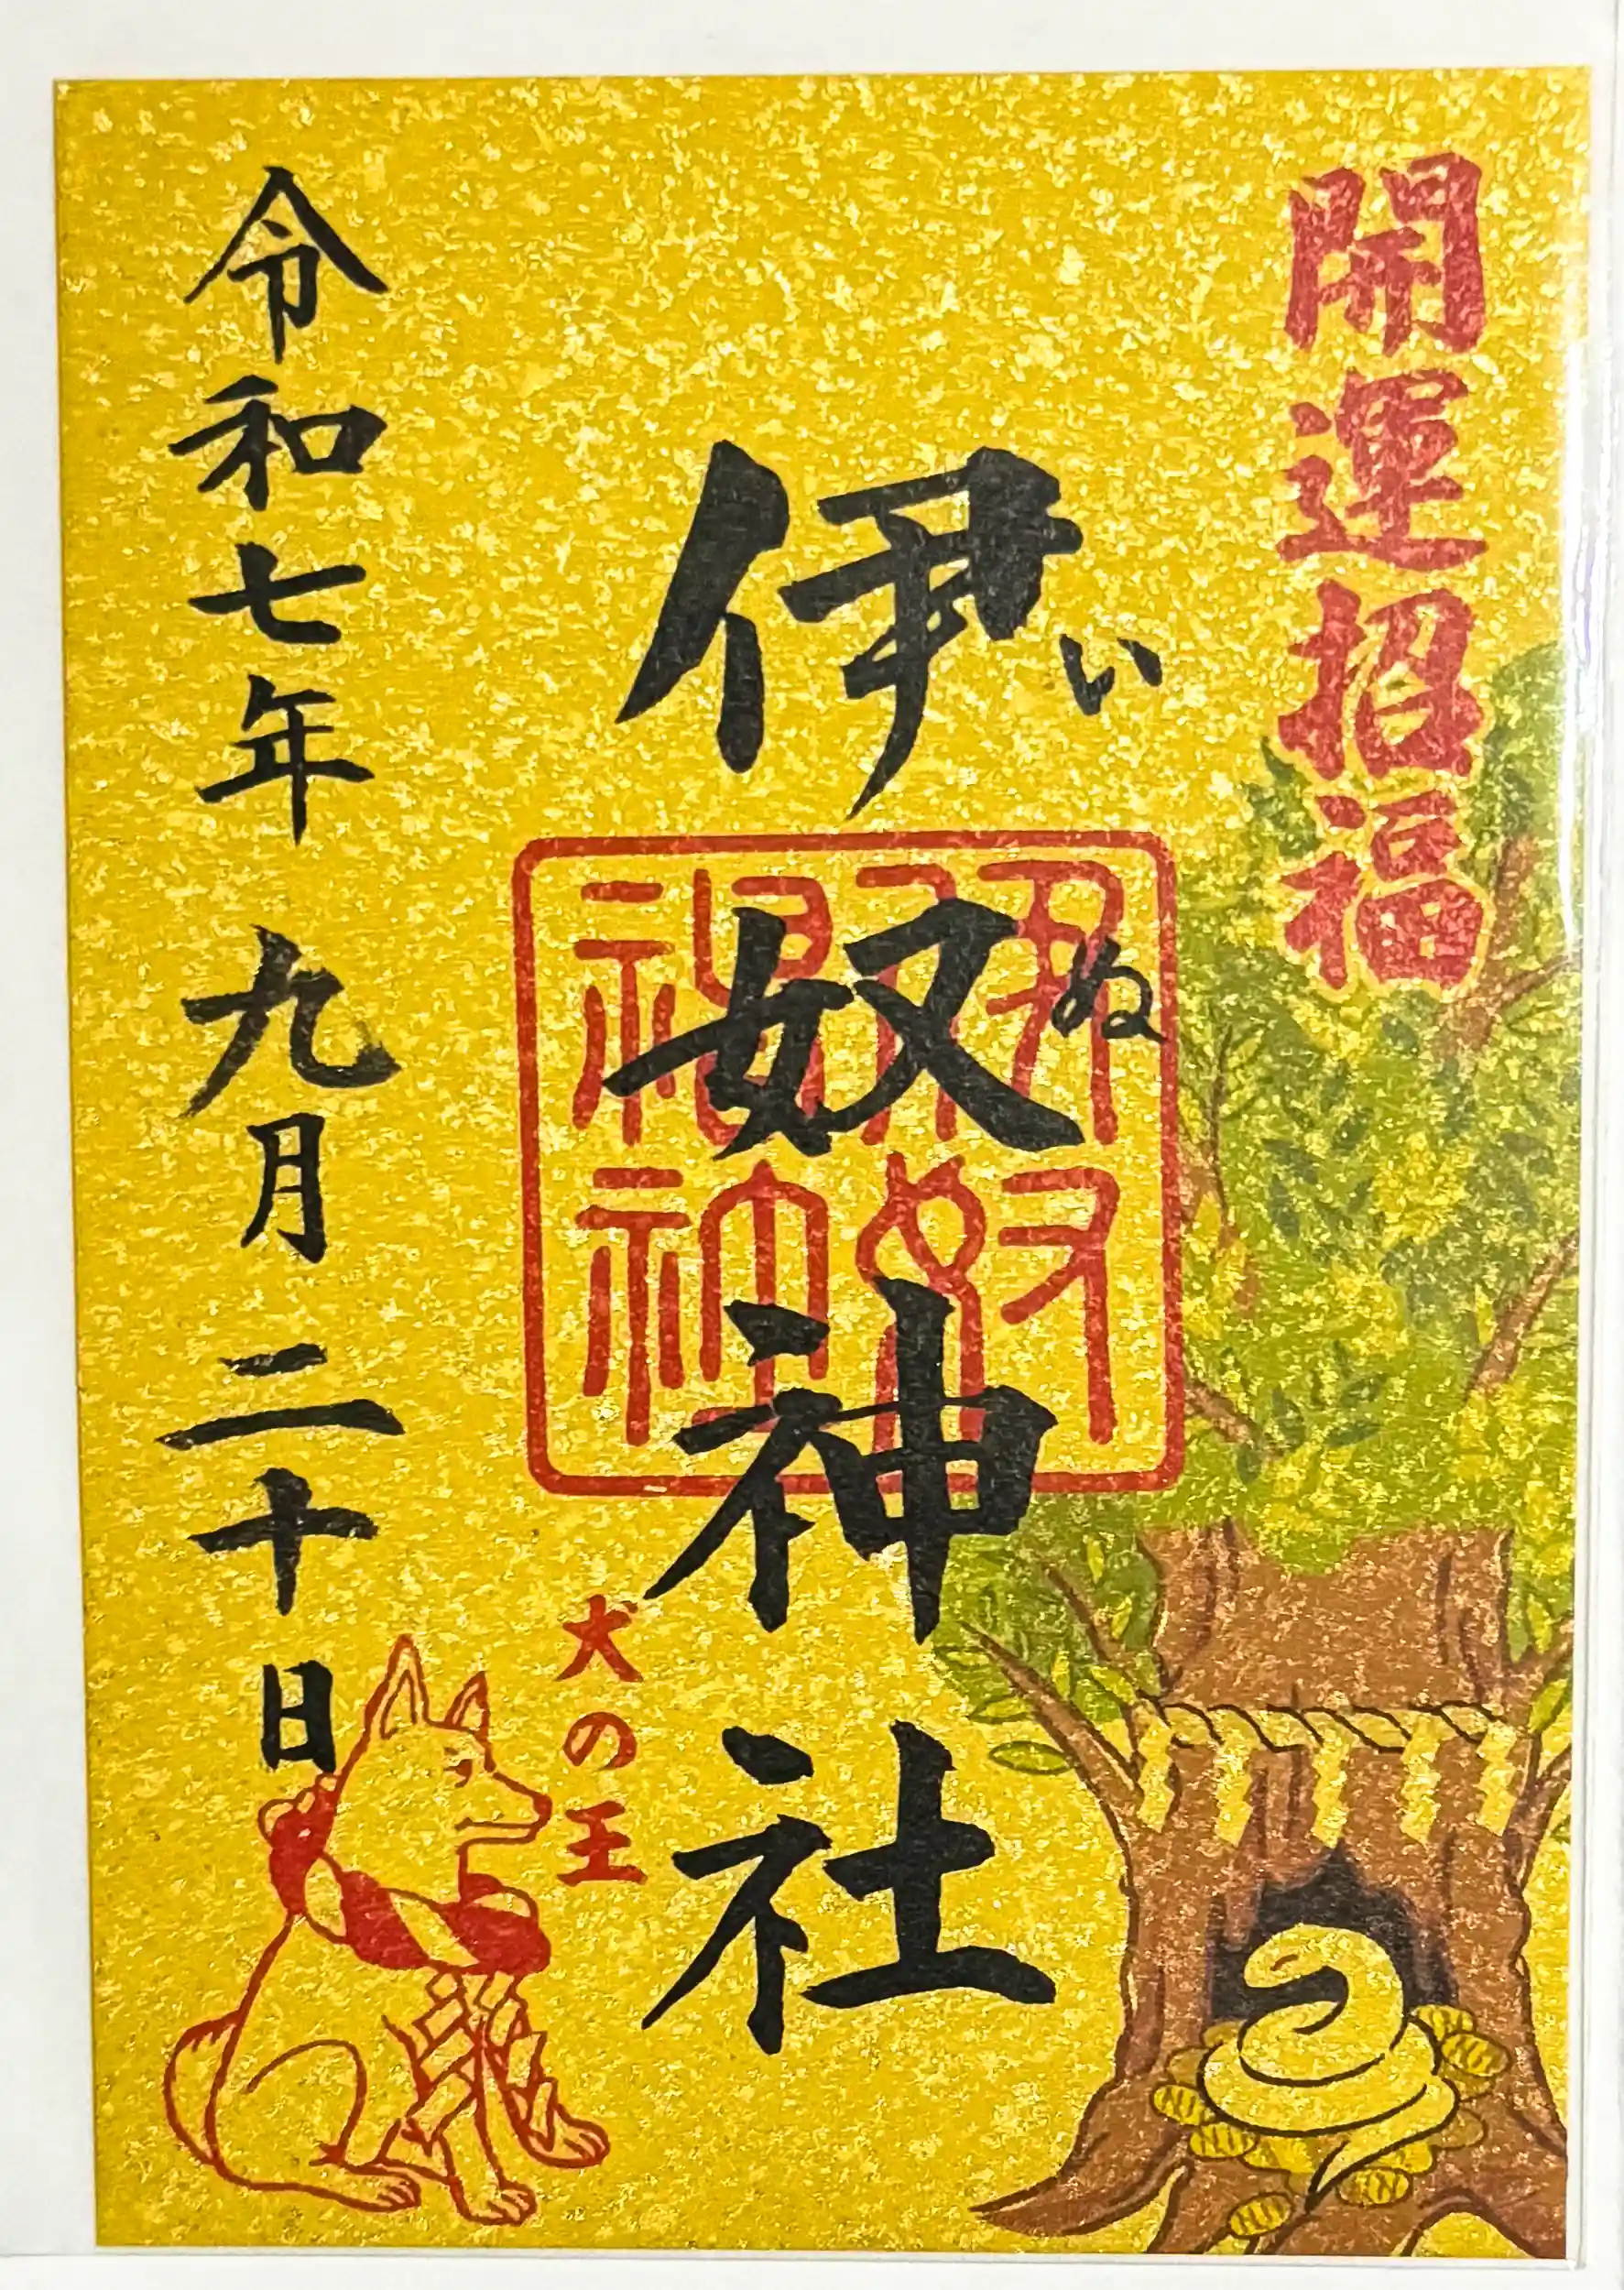 開運招福
伊奴神社
いぬ
伊奴神社
犬の王
令和七年九月二十日